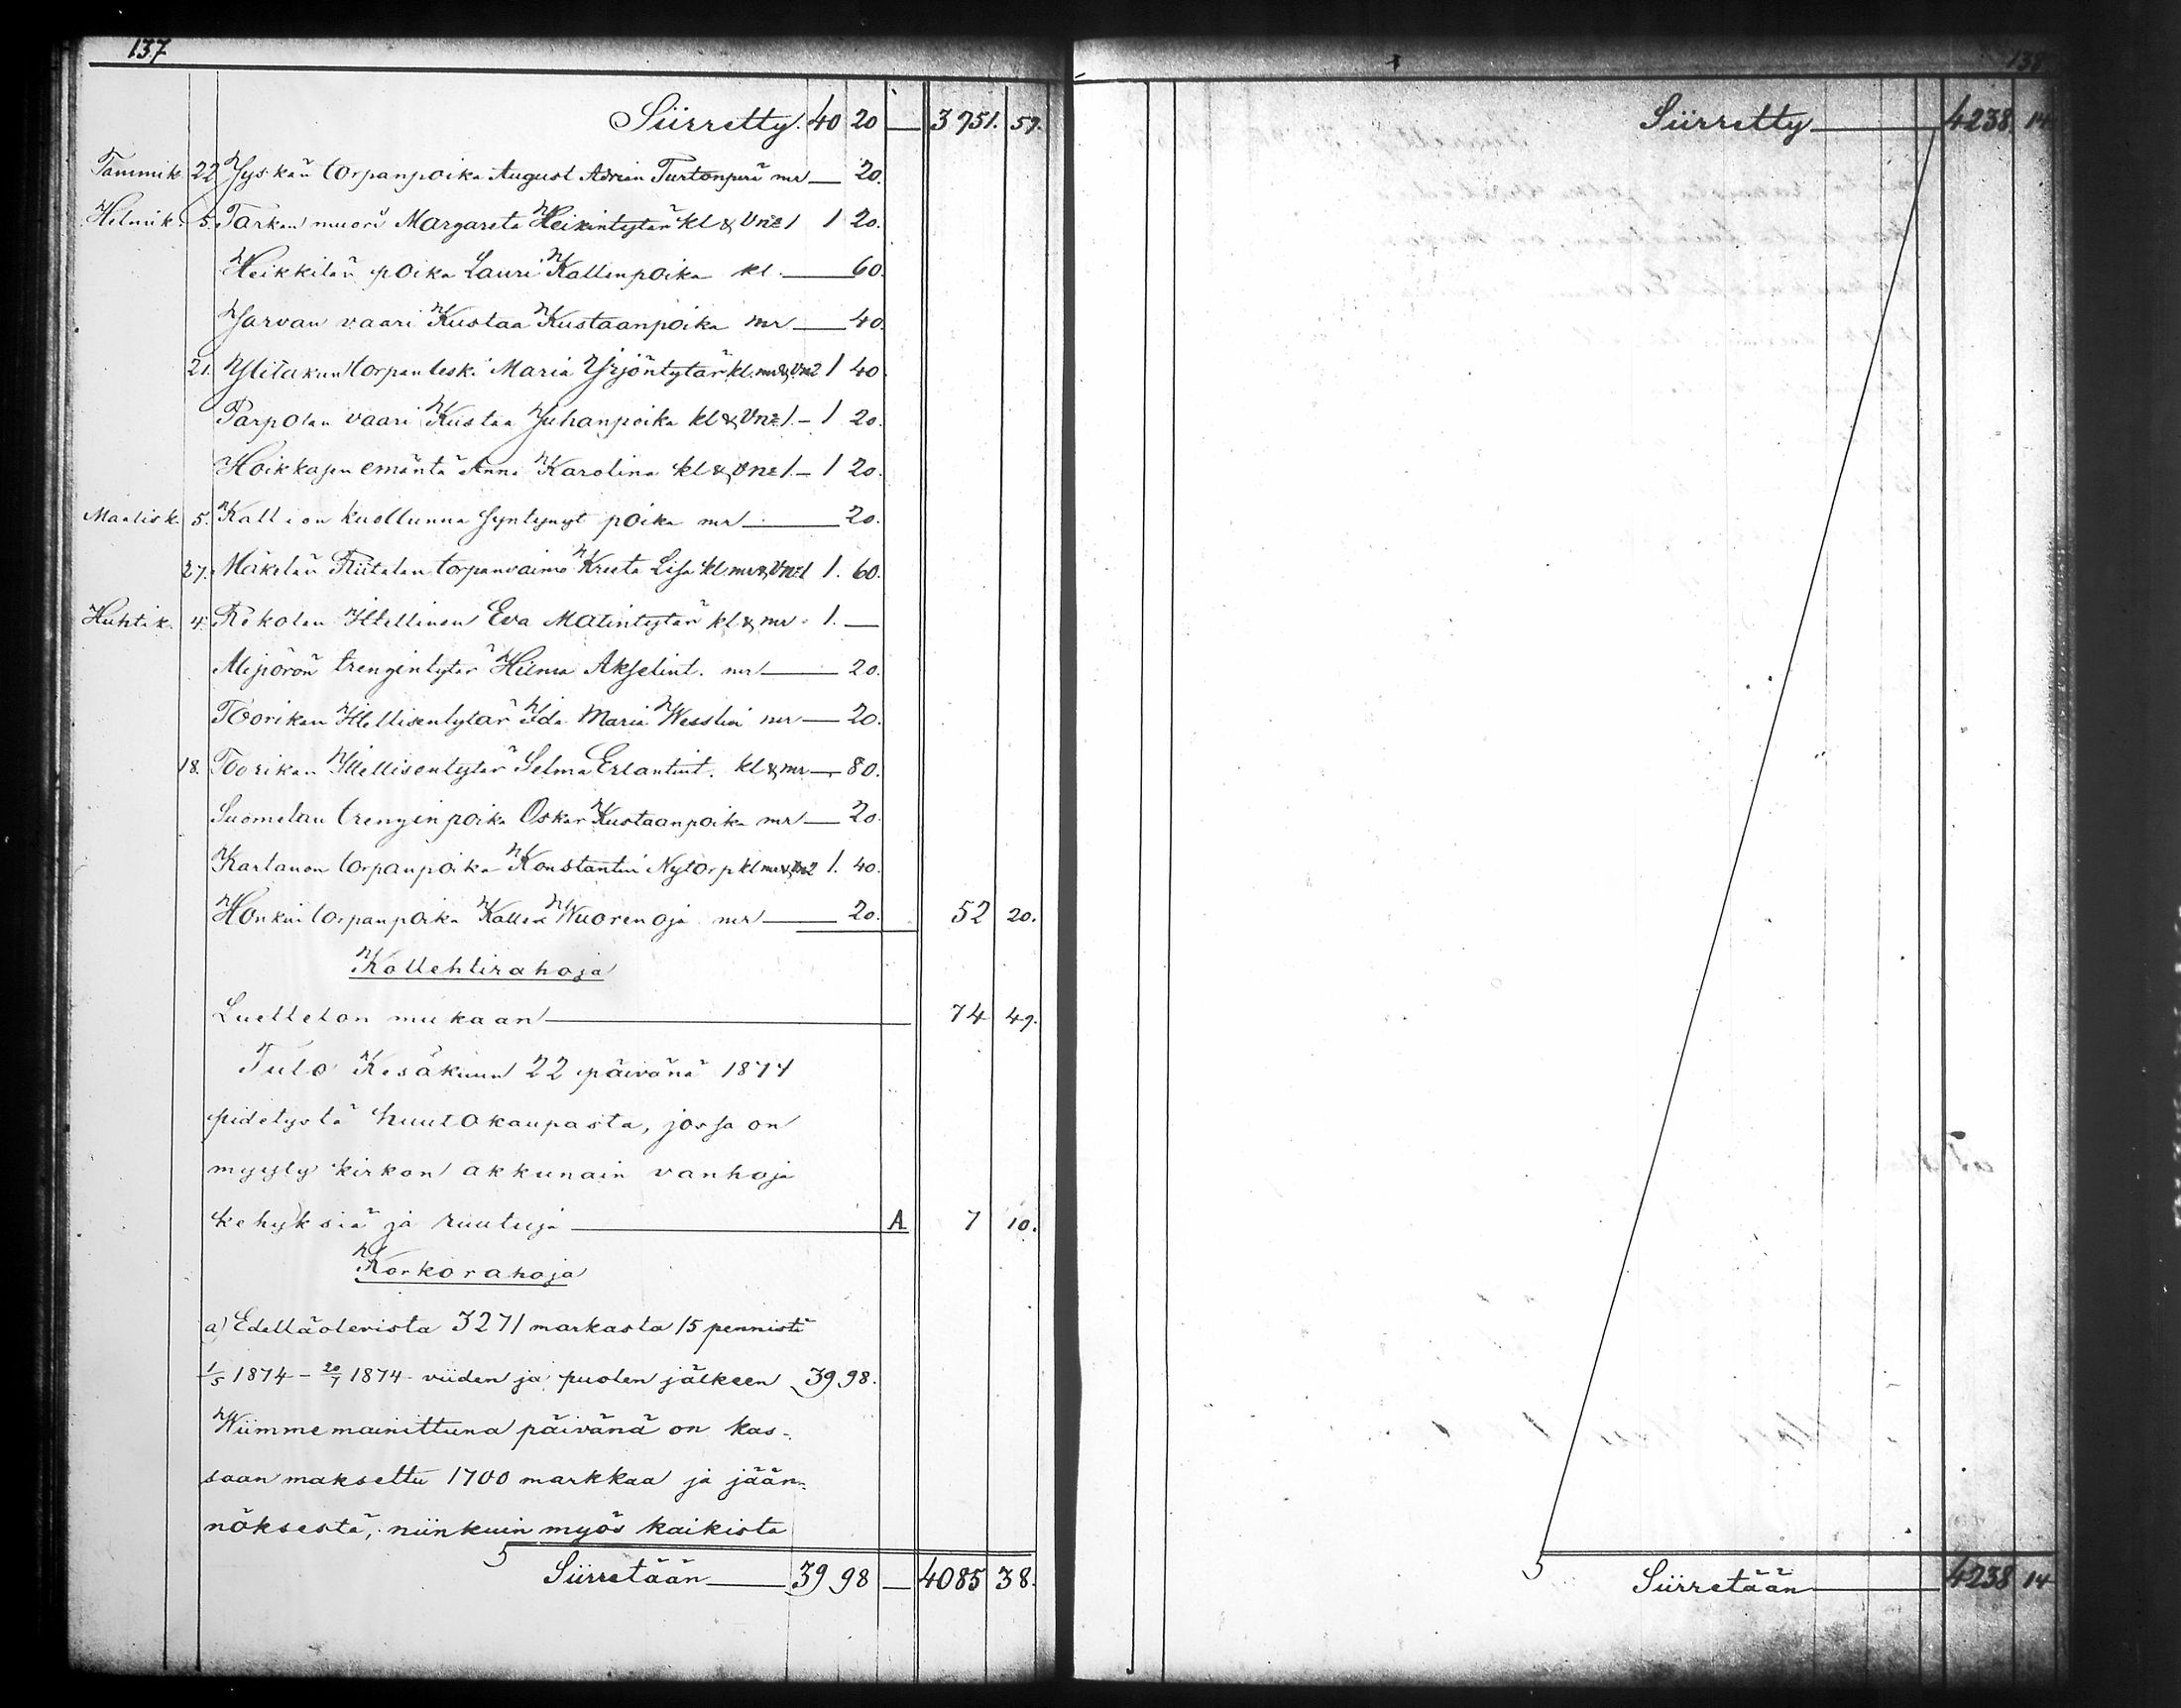 137
Siirretty. 40 20 — 3951. 59.
Tammik. 22 Jyskän torpanpoika August Adrian Turtonperä mr — 20.
Helmik. 5. Tarkan muori Margareta Heikintytär kl & Vn:1 1 20.
Heikkilän poika Lauri Kallenpoika kl. — 60.
Jarvan vaari Kustaa Kustaanpoika mr — 40.
21. Ylitakun torpanleski Maria Yrjöntytär kl. mr & Vn:2 1 40.
Parpolan vaari Kustaa Juhanpoika kl & Vn:1. – 1 20.
Hoikkasen emäntä Anna Karolina kl & Vn:1. – 1 20.
Maalisk. 5. Kallion kuollunna syntynyt poika mr — 20.
27. Mäkelän Riitalan torpanvaimo Kreeta Lisa kl mr & Vn:1 1. 60.
Huhtik. 4. Rekolan Itsellinen Eva Matintytär kl & mr. 1. —
trengintytär Hilma Akselint. mr — 20.
Toorikan Itsellisentytär Ida Maria Wesslin mr — 20.
18. Toorikan Itsellisentytär Selma Erlantint. kl & mr — 80.
Suomelan trenginpoika Oskar Kustaanpoika mr — 20.
Kartanon torpanpoika Konstantin Nytorp kl mr & Vn:2 1. 40.
Honkin torpanpoika Kalle Wuorenoja mr — 20. 52 20.
Kollehtirahoja
Luettelon mukaan — 74 49.
Tulo Kesäkuun 22 päivänä 1874
pidetystä huutokaupasta, jossa on
myyty kirkon akkunain vanhoja
kehyksiä ja ruutuja — A 7 10.
Korkorahoja
a) Edelläolevista 3271 markasta 15 pennistä
1/5 1874 – 20/7 1874 viiden ja puolen jälkeen 39 98.
Wiimmemainittuna päivänä on kas-
saan maksettu 1700 markkaa ja jään-
nöksestä, niinkuin myös kaikista
Siirretään — 39 98 — 4085 38.
138
Siirretty — 4238 14
Siirretään — 4238 14